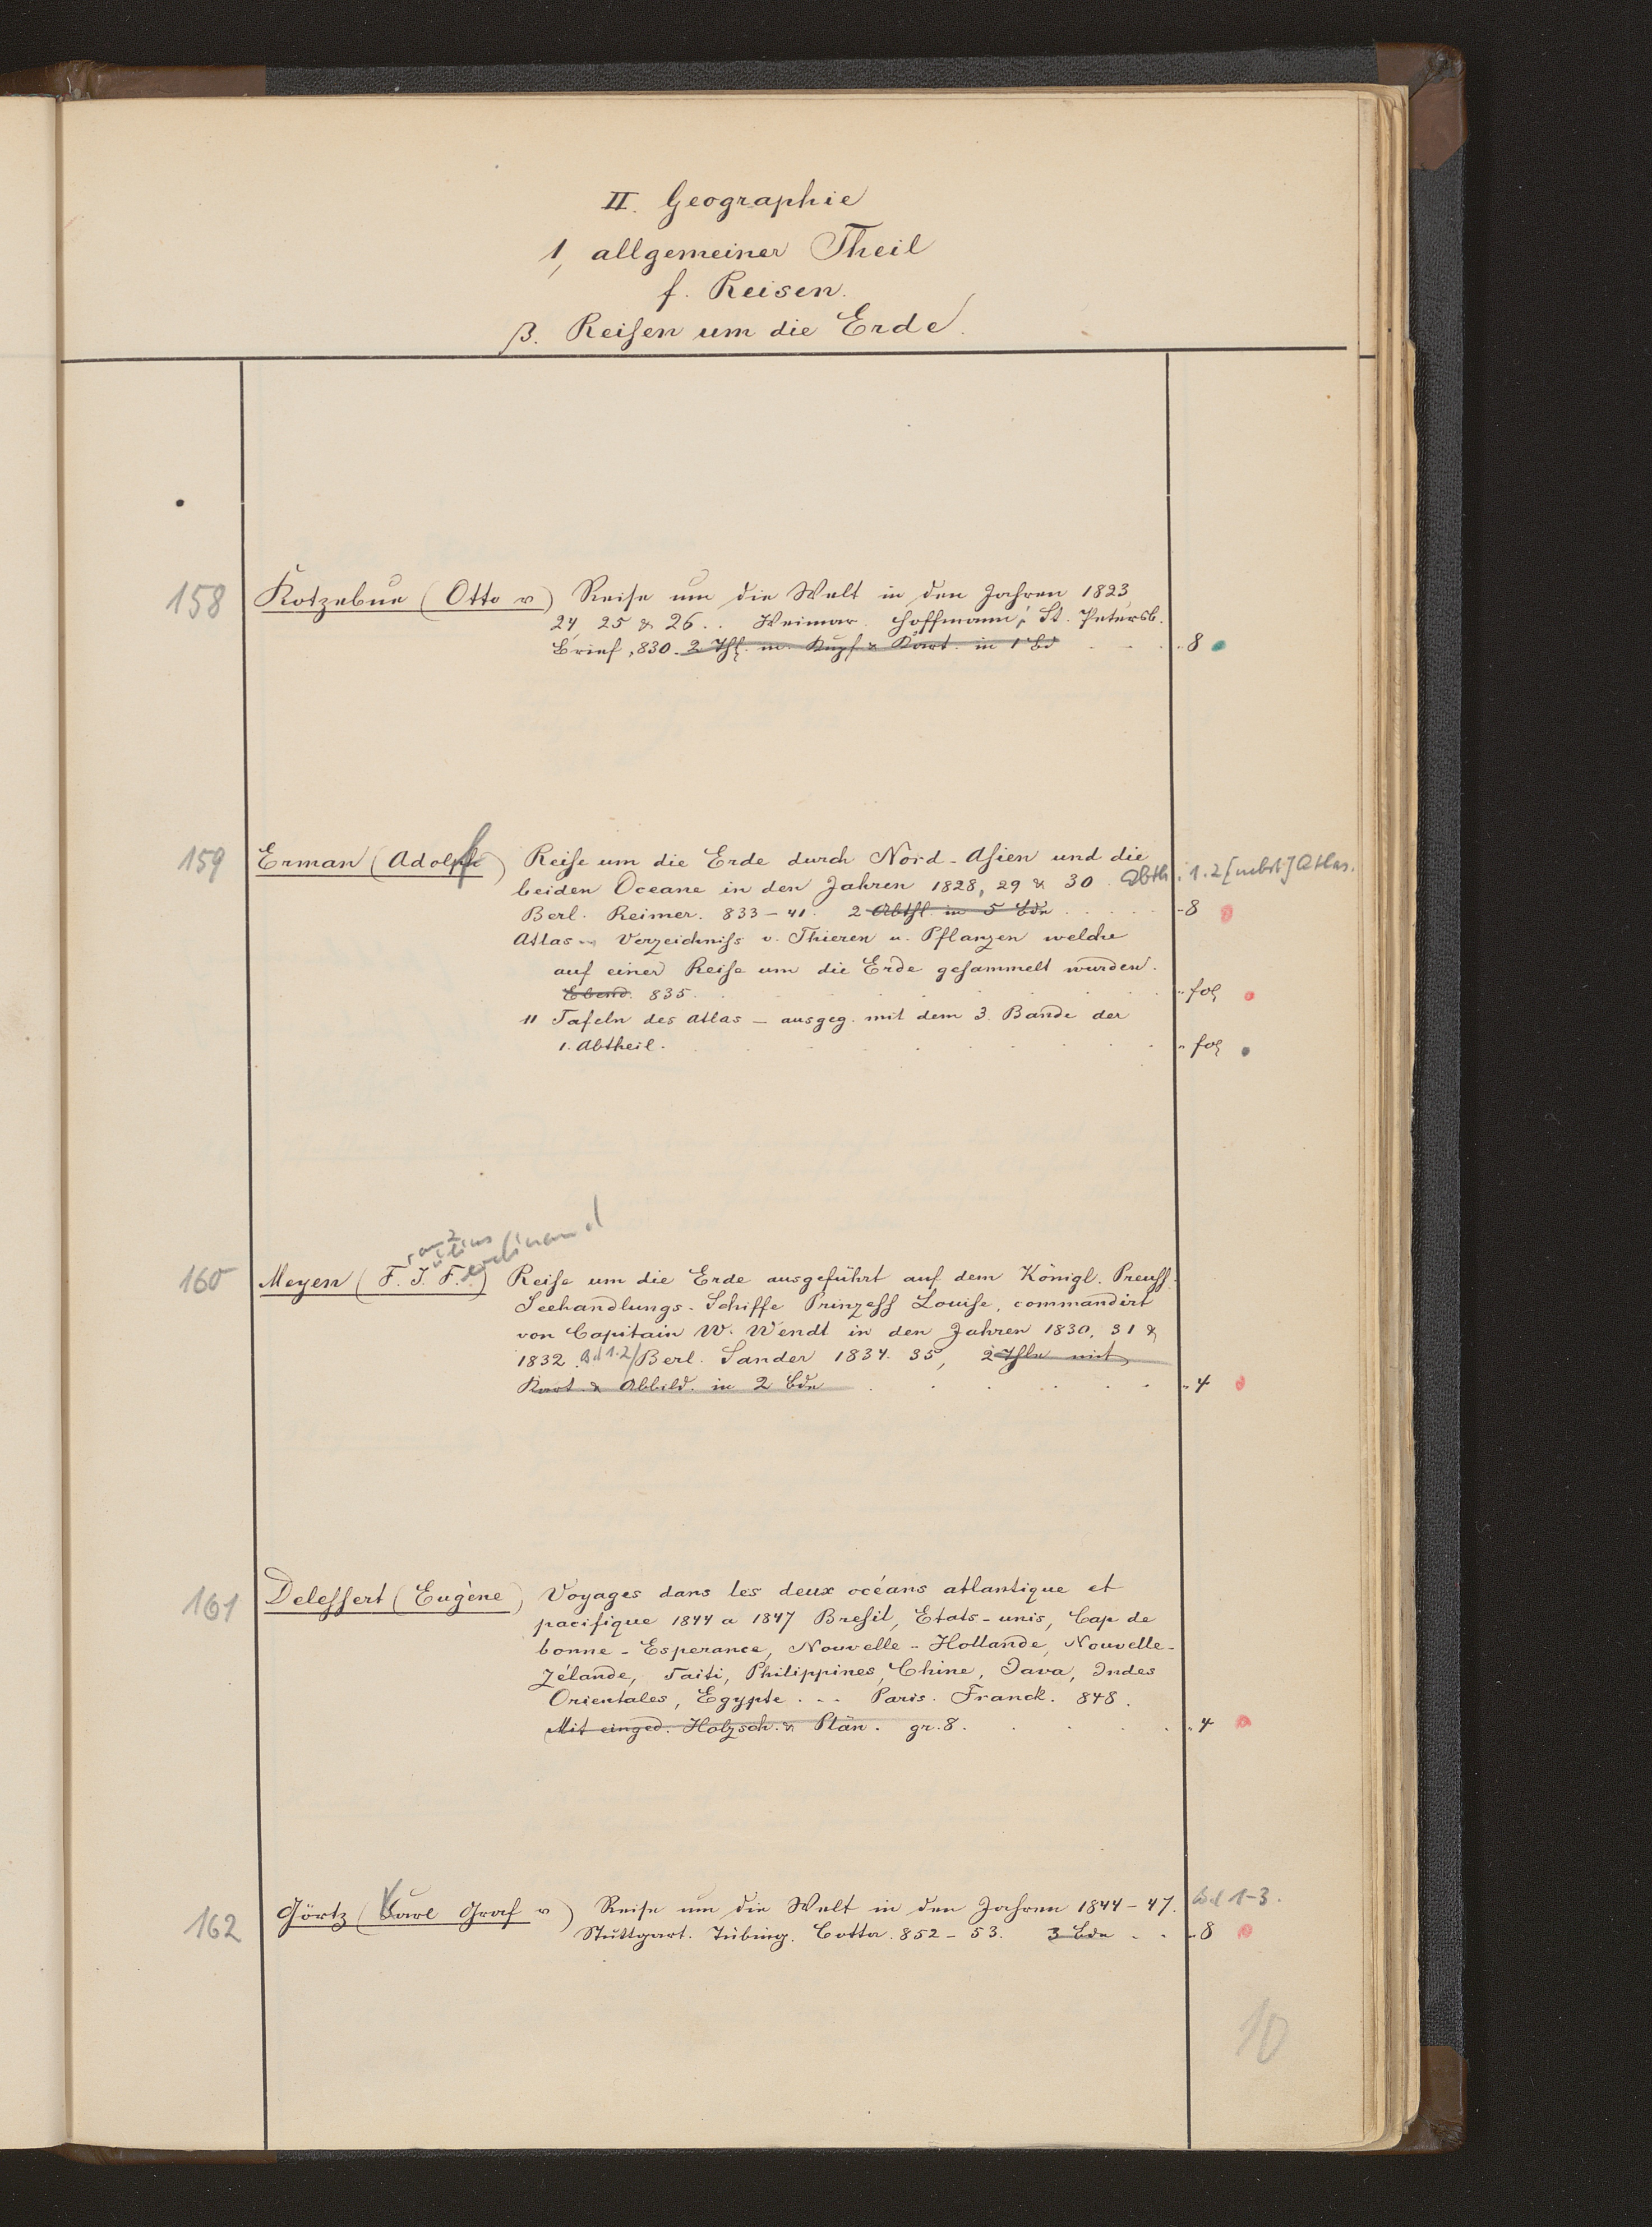 II. Geographie
1, allgemeiner Theil
f. Reisen.
β. Reisen um die Erde.
158 Kotzebue (Otto v) Reise um die Welt in den Jahren 1823
24, 25 & 26.. Weimar. Hoffmann; St. Petersb.
Brief, 830. 2 Thl. m. Kupf & Kart. in 1 Bd . . . 8
159 Erman (Adolph) Reise um die Erde durch Nord-Asien und die
beiden Oceane in den Jahren 1828, 29 & 30. Abth. 1.2 [nebst] Atlas.
Berl. Reimer. 833-41. 2 Abthl. in 5 Bdn . . . . . 8
Atlas - Verzeichniss v. Thieren u. Pflanzen welche
auf einer Reise um die Erde gesammelt wurden.
Ebend. 835. . . . . . . " fol
11 Tafeln des Atlas - ausgeg. mit dem 3. Bande der
1. Abtheil. . . . . . . " fol
ranz ulius erdinand
160 Meyen (F. J. F.) Reise um die Erde ausgeführt auf dem Königl. Preuss.
Seehandlungs-Schiffe Prinzess Louise, commandirt
von Capitain W. Wendt in den Jahren 1830, 31 &
1832. Bd 1.2/ Berl. Sander 1834. 35, 2 Thle mit
Kart. & Abbild. in 2 Bdn . . . . . . " 4
161 Delessert (Eugène) Voyages dans les deux océans atlantique et
pacifique 1844 a 1847 Bresil, Etats-unis, Cap de
bonne-Esperance, Nouvelle-Hollande, Nouvelle-
Zélande, Taiti, Philippines, Chine, Java, Indes
Orientales, Egypte . . . Paris. Franck. 848.
Mit einged. Holzsch. & Plän. gr. 8. . . . . " 4
162 Görtz (Karl Graf v) Reise um die Welt in den Jahren 1844-47. Bd 1-3.
Stuttgart. Tübing. Cotta. 852-53. 3 Bde . . 8
10